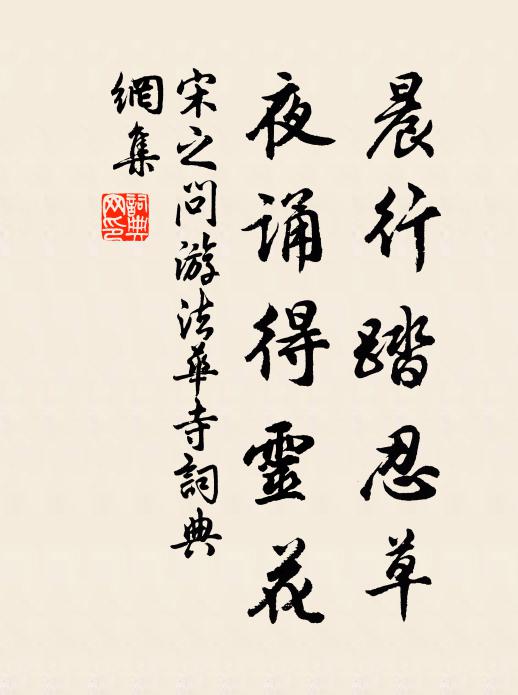 晨行踏忍草
夜诵得靈花
宋之问游法華寺詞典
網集
詞典网印